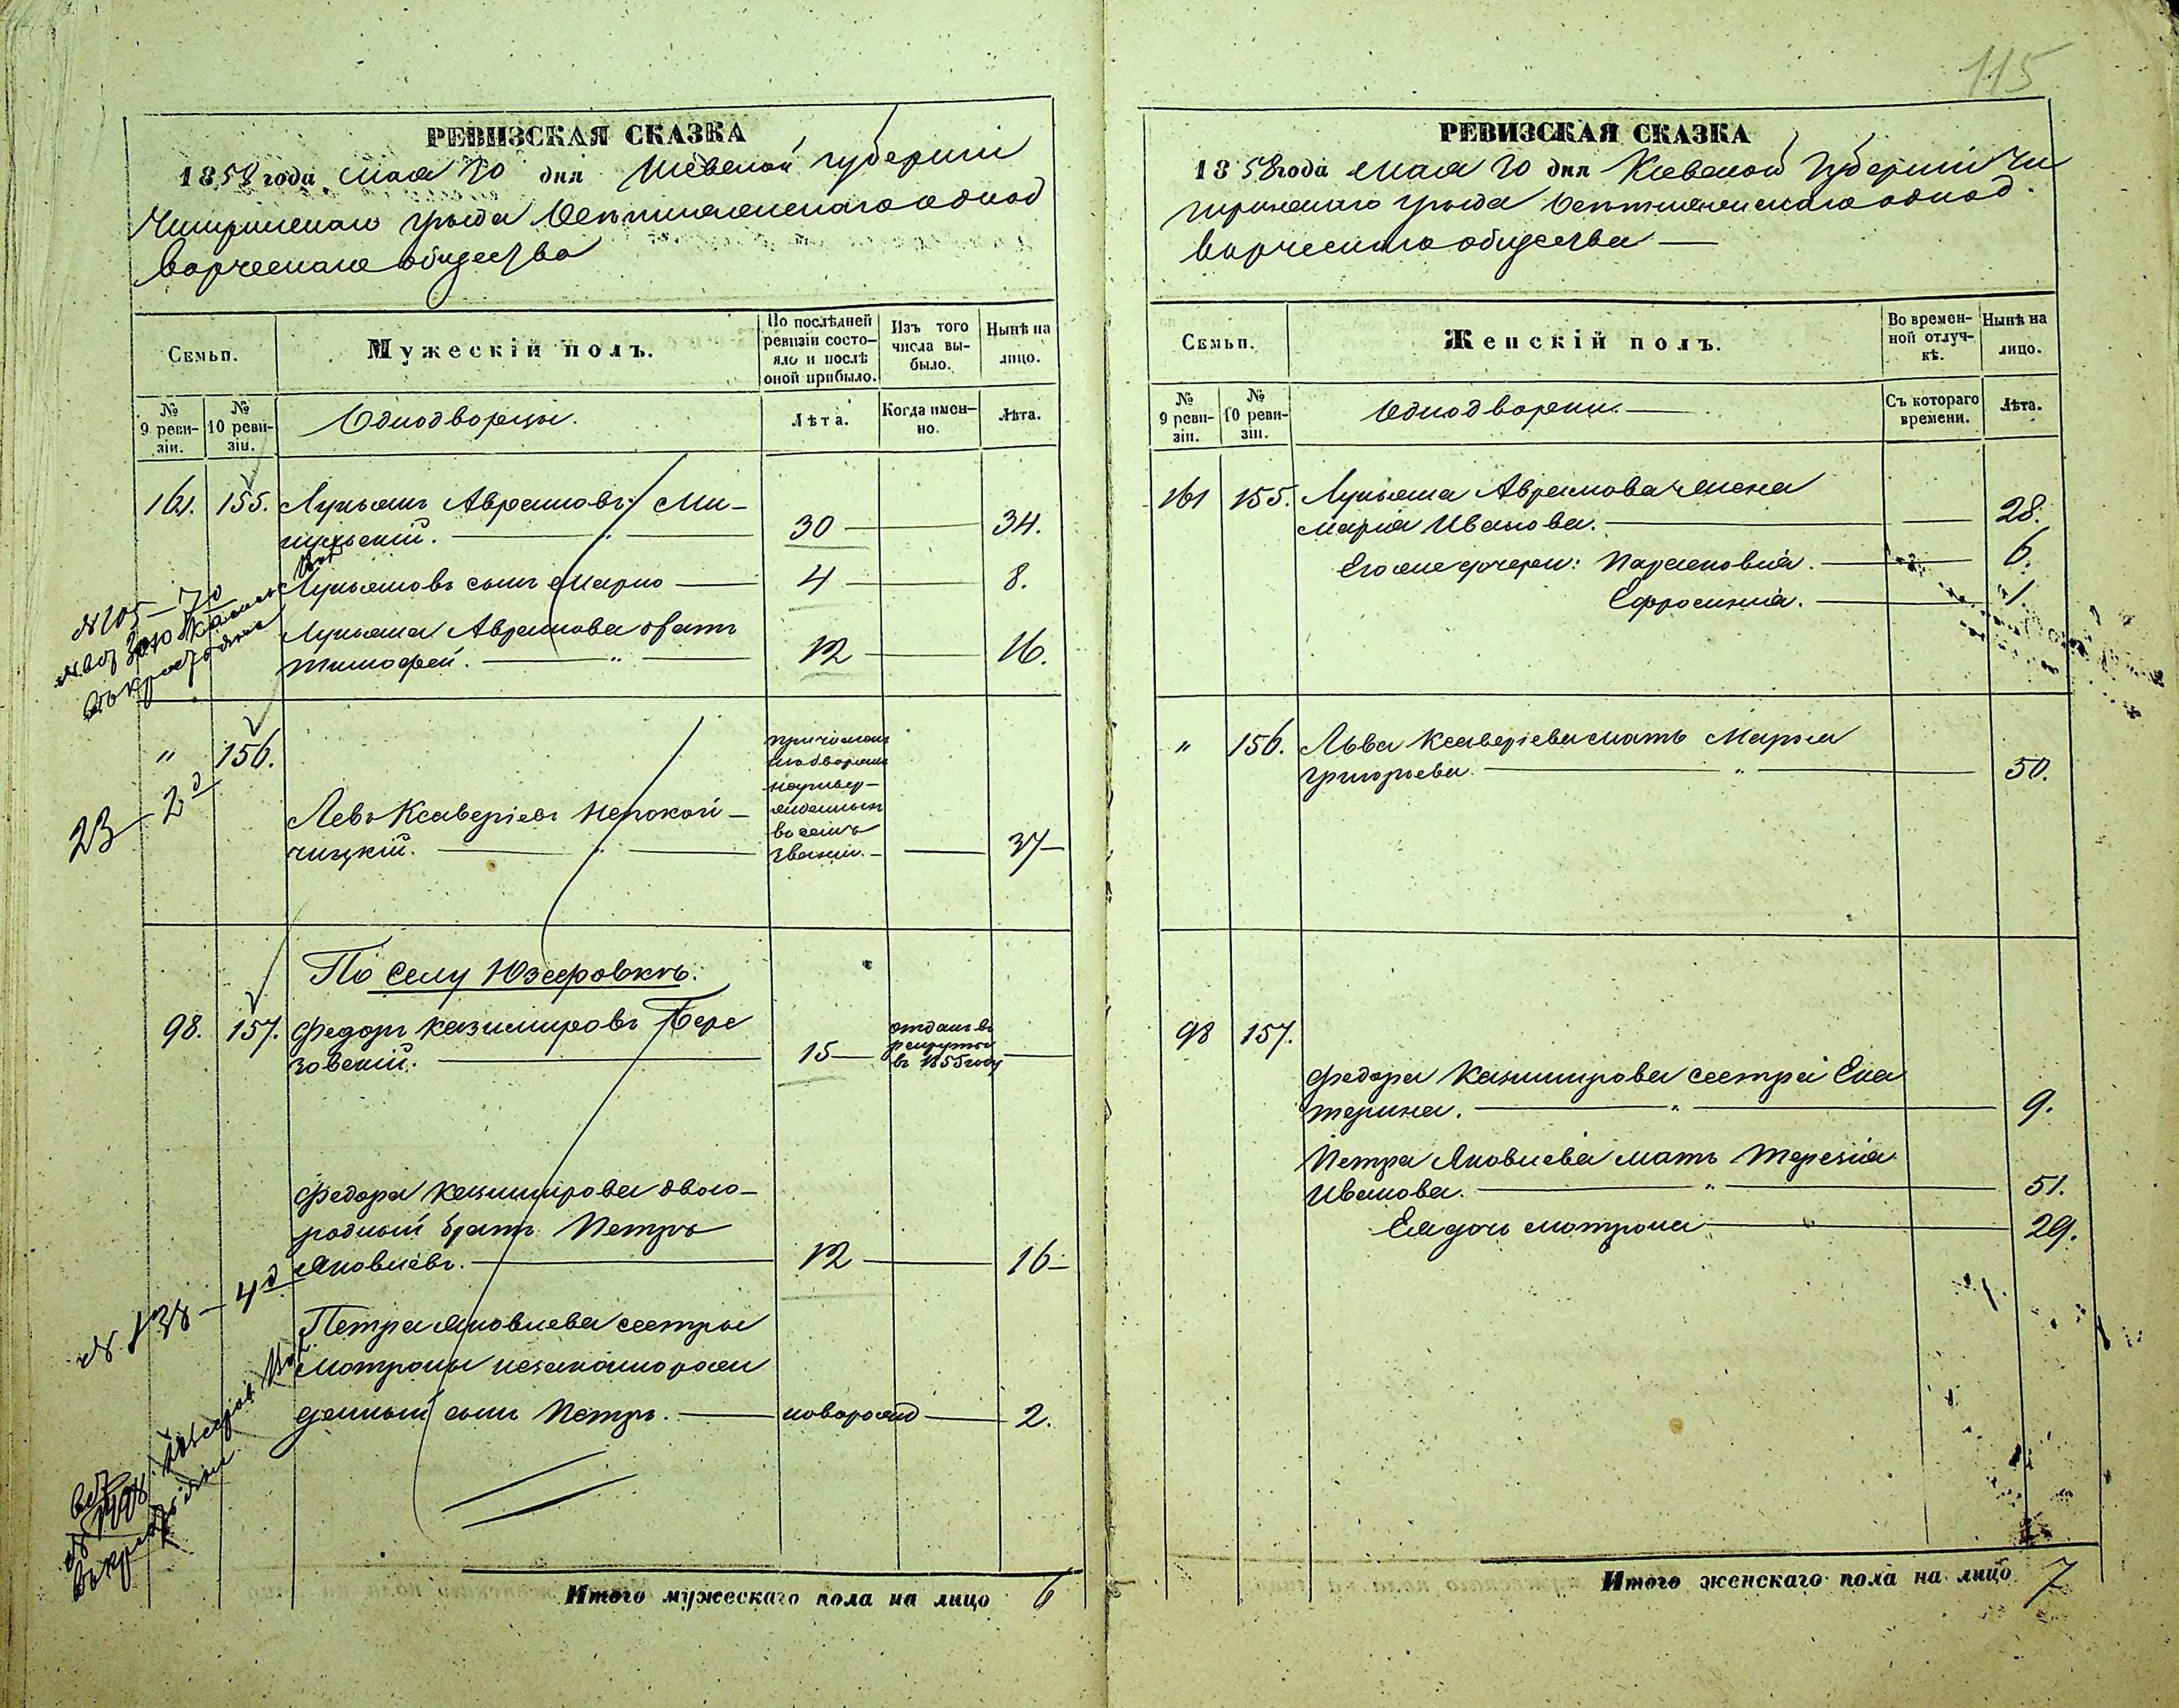 115
РЕВИЗСКАЯ СКАЗКА
1858 года Мая 20 дня Кіевской губерніи
Чигиринскаго уѣзда однод
ворческаго общества
Семьи.
Мужескій полъ.
По послѣдней ревизіи состояло и послѣ оной прибыло.
Изъ того числа выбыло.
Нынѣ на лицо.
№ 9 ревизіи.
№ 10 ревизіи.
Однодворцы.
Лѣта.
Когда именно.
Лѣта.
161. 155. Лукьянъ Аврамовъ Ми-
гульскій. 30 34.
Лукьяновъ сынъ Марко 4 8.
Лукьяна Аврамова братъ
Тимофей. 12 16.
№ 105 – 70
" 156. Левъ Ксаверіевъ Непокой-
чицкій. 37
23 – 2д
По селу Юзефовкѣ.
98. 157. Федоръ Казимировъ Бере
зовскій. 15 отданъ въ
рекруты
въ 1855 году
Федора Казимирова двою-
родный братъ Петръ
Яковлевъ. 12 16
№ 138 – 4д
Петра Яковлева сестры
Мотроны незаконнорож
денный сынъ Петръ. новорожд 2.
Итого мужескаго пола на лицо 6
РЕВИЗСКАЯ СКАЗКА
1858 года Мая 20 дня Кіевской Губерніи Чи
гиринскаго уѣзда однод
ворческаго общества
Семьи.
Женскій полъ.
Во временной отлучкѣ.
Нынѣ на лицо.
№ 9 ревизіи.
№ 10 ревизіи.
Однодворки.
Съ котораго времени.
Лѣта.
161 155. Лукьяна Аврамова жена
Марія Иванова. 28.
Его же дочери: Параскевія. 6.
Ефросинія. 1.
" 156. Льва Ксаверіева мать Марья
Григорьева. " 50.
98 157.
Федора Казимирова сестра Ека
терина. " 9.
Петра Яковлева мать Терезія
Иванова. " 51.
Ея дочь Мотрона 29.
Итого женскаго пола на лицо 7